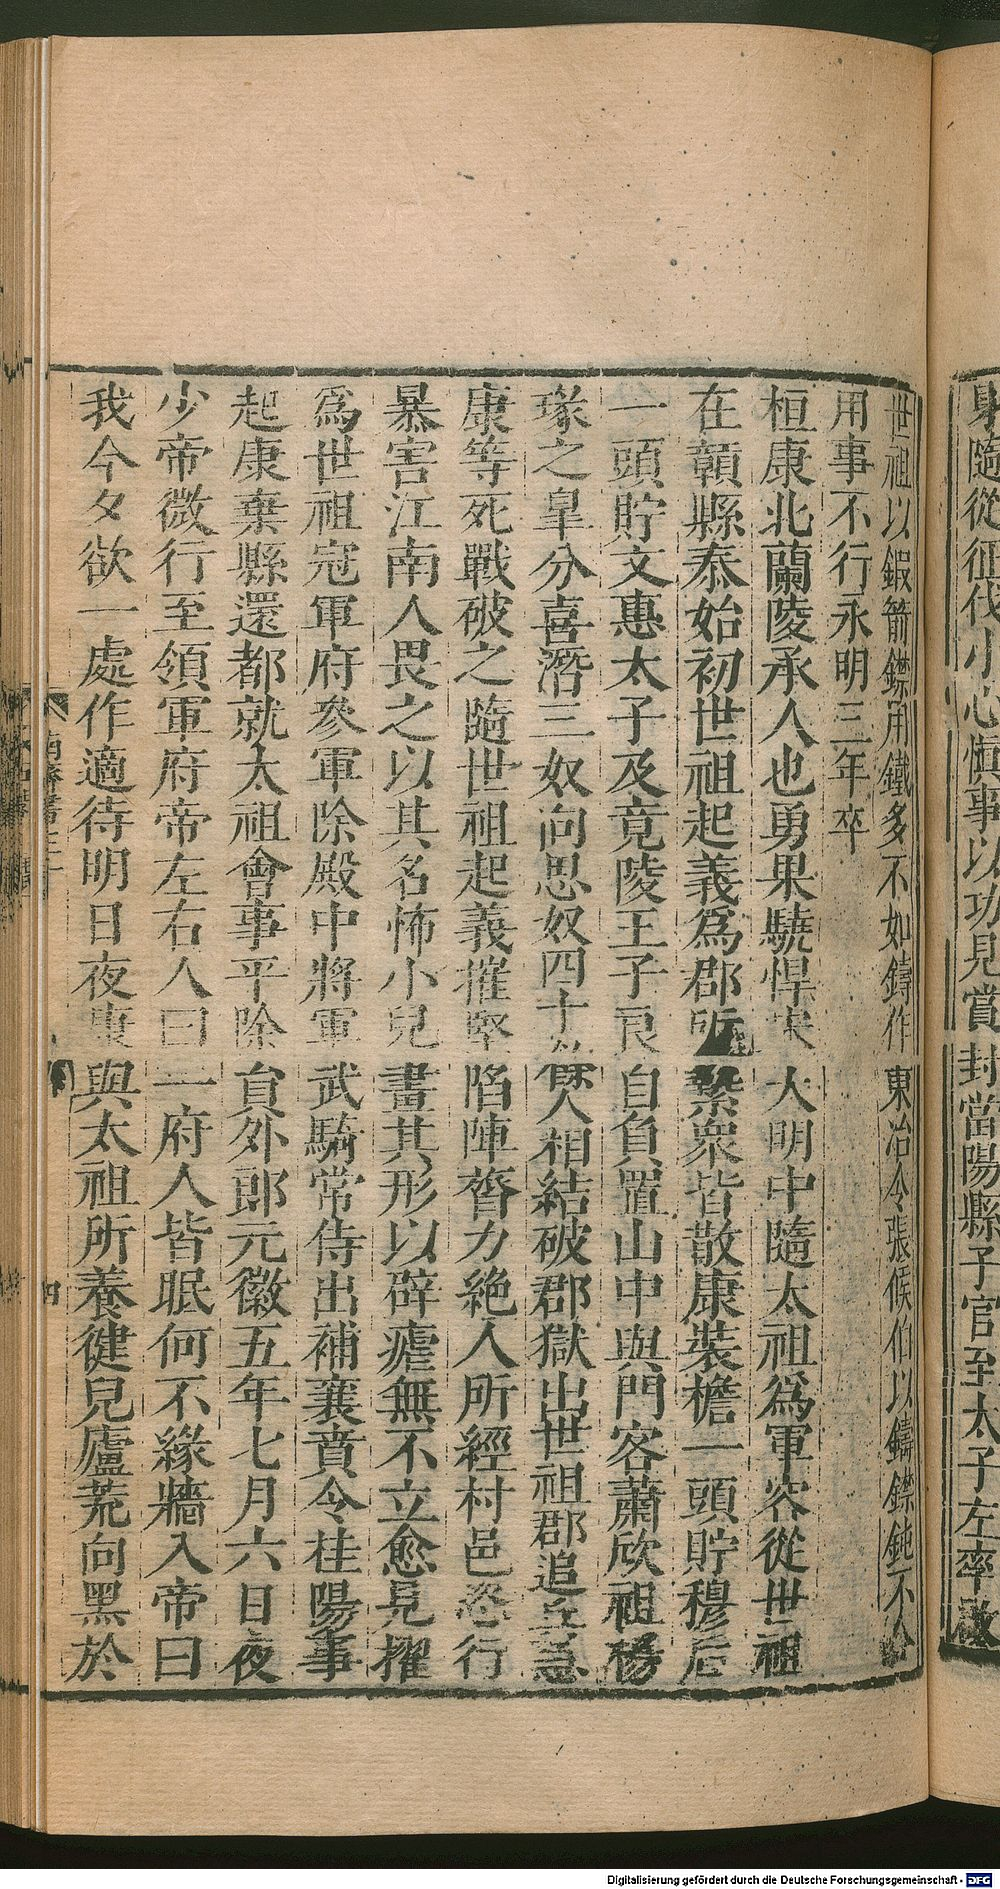 東隨從征伐小心慎事以功見賞封當陽縣子官至太子左率
世祖以鍜箭鏃用鐵多不如鑄作東冶令張候伯以鑄鏃鈍不合
用事不行永明三年卒
桓康北蘭陵承人也勇果驍悍宋大明中隨太祖爲軍容從世祖
在贑縣泰始初世祖起義爲郡所縶衆皆散康裝檐一頭貯穆后
一頭貯文惠太子及竟陵王子良自負置山中與門客蕭欣祖楊
瑑之皐分喜潛三奴向思奴四十餘人相結破郡獄出世祖郡追兵急
康等死戰破之隨世祖起義摧堅陷陣膂力絶人所經村邑恣行
暴害江南人畏之以其名怖小兒畫其形以辟瘧無不立愈見擢
爲世祖冠軍府參軍除殿中將軍武騎常侍出補襄賁令桂陽事
起康棄縣還都就太祖會事平除貟外郎元徽五年七月六日夜
少帝微行至領軍府帝左右人曰一府人皆眠何不緣牆入帝曰
我今夕欲一處作適待明日夜康與太祖所養健兒盧荒向黑於
南齊書三十
四
Digitalisierung gefördert durch die Deutsche Forschungsgemeinschaft - DFG